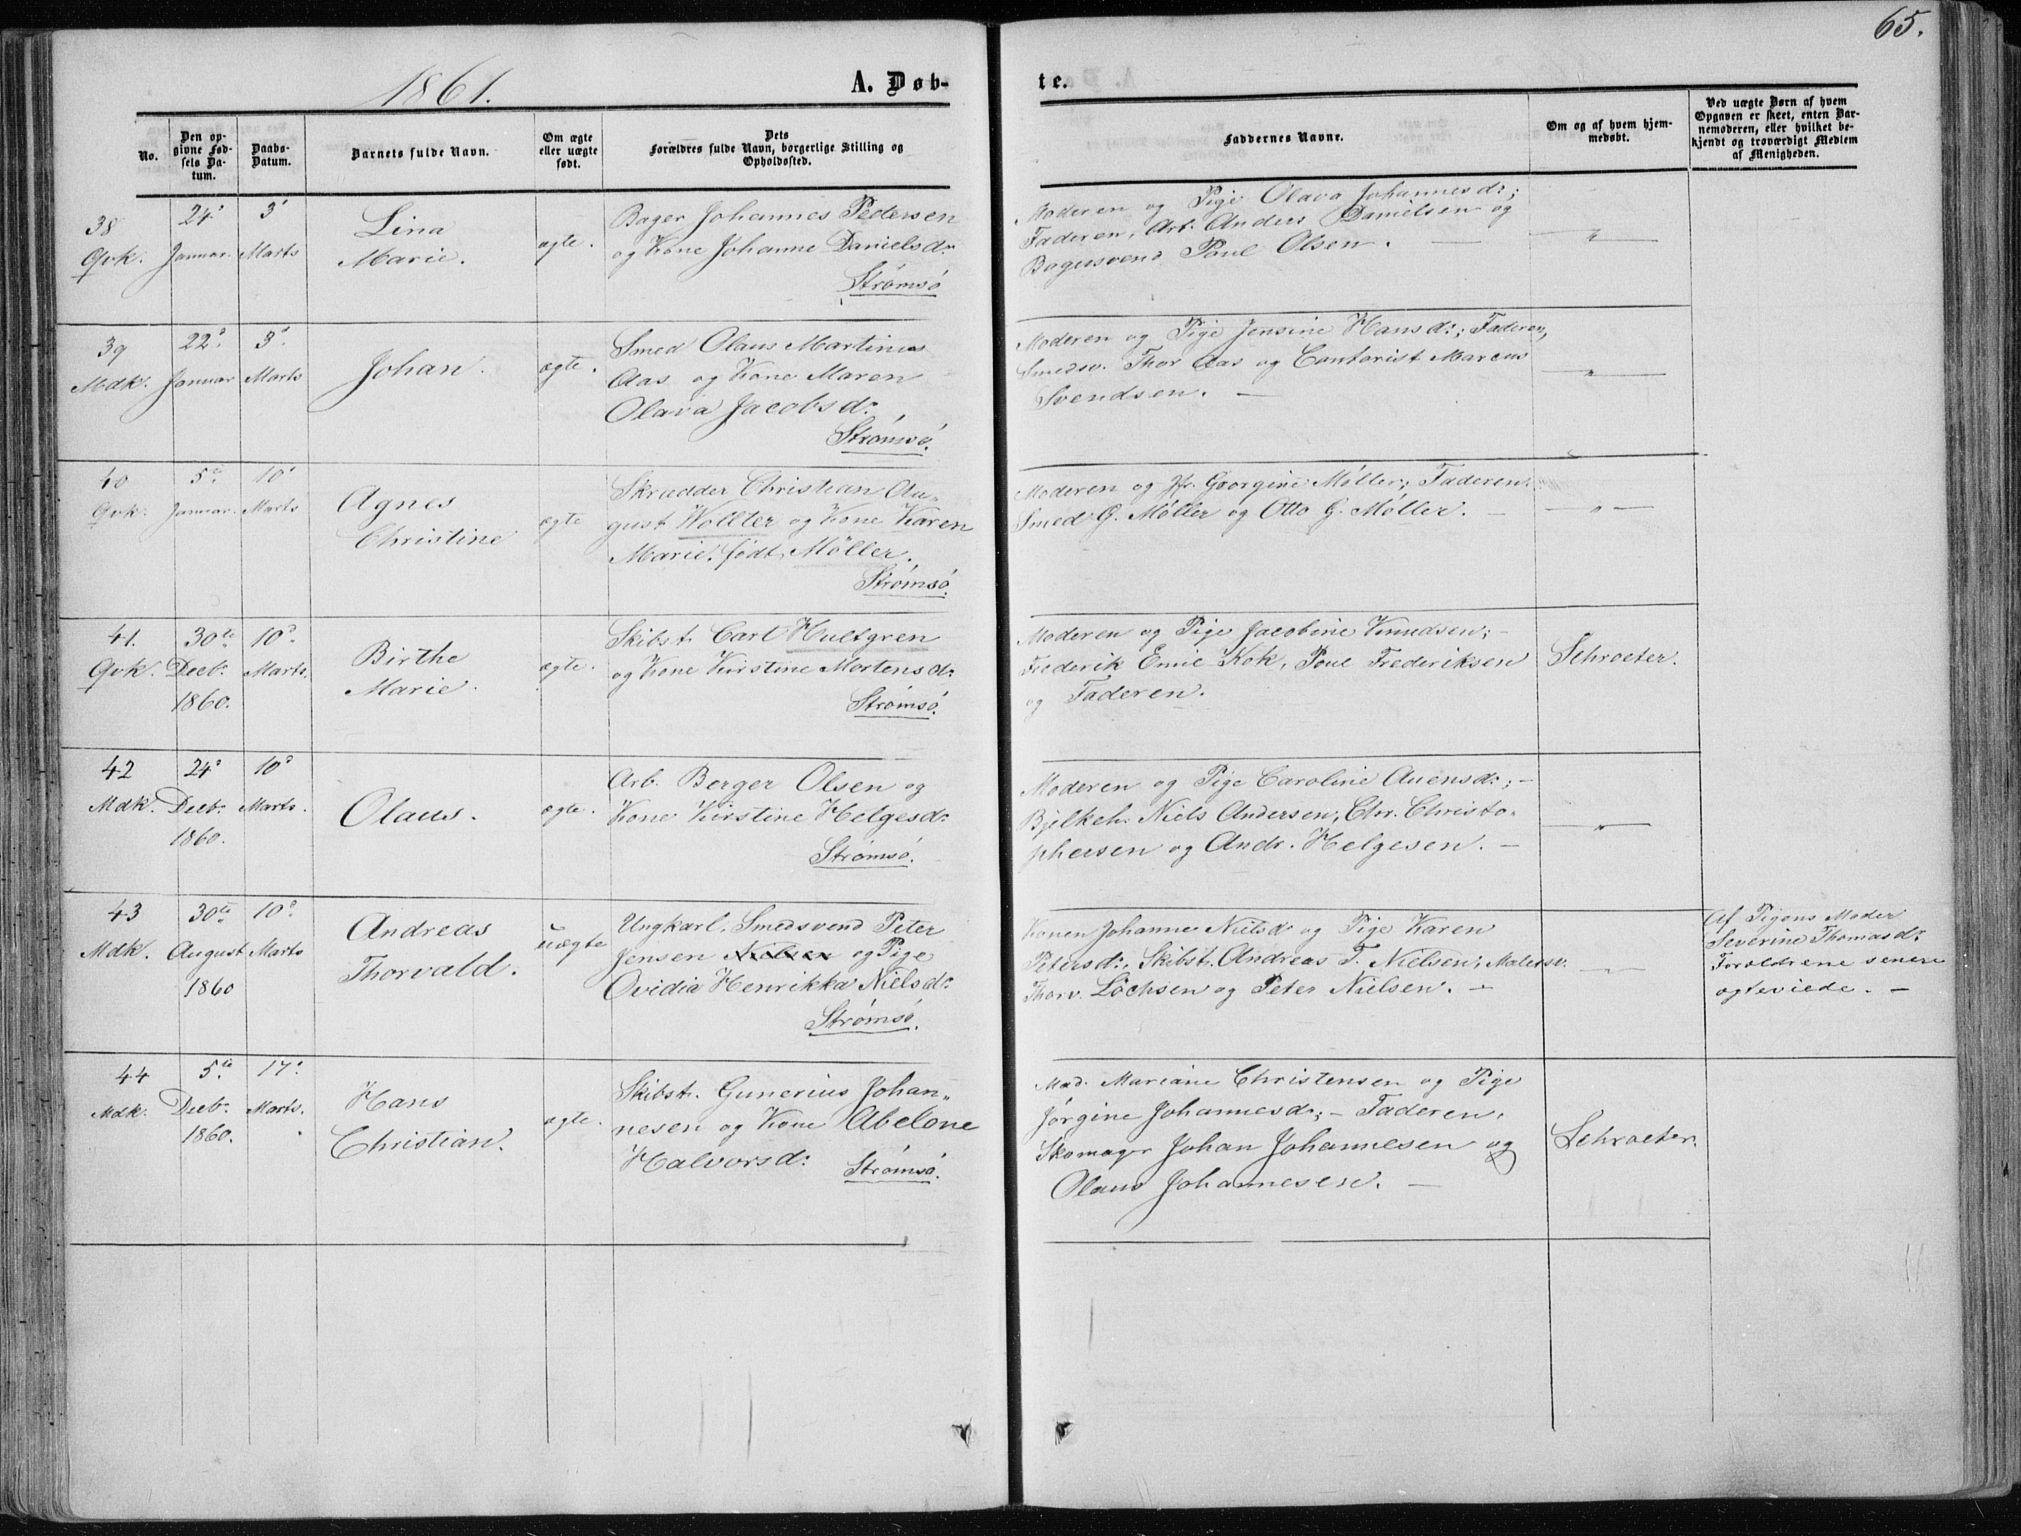 65.
1861.
A. Døb-
te.
No.
Den op-
givne Fød-
sels Da-
tum.
Daabs-
Datum.
Barnets fulde Navn.
Om ægte
eller uægte
født.
Dets
Forældres fulde Navn, borgerlige Stilling og
Opholdssted.
Faddernes Navne.
Om og af hvem hjem-
medøbt.
Ved uægte Børn af hvem
Opgaven er skeet, enten Bar-
nemoderen, eller hvilket be-
kjendt og troværdigt Medlem
af Menigheden.
38
Qvk.
24d
Januar.
3d
Marts
Lina
Marie.
ægte.
Bager Johannes Pedersen
og Kone Johanne Danielsdr.
Strømsö
Moderen og Pige Olava Johannesdr;
Faderen, Arb. Anders Danielsen og
Bagersvend Poul Olsen. —
— " —
39
Mdk.
22d
Januar
3d
Marts
Johan.
ægte.
Smed Olaus Martinus
Aas og Kone Maren
Olava Jacobsdr.
Strømsö.
Moderen og Pige Jensine Hansdr; Faderen,
Smedsv. Thor Aas og Contorist Marcus
Svendsen. —
— " —
40
Qvk.
5te
Januar.
10d
Marts
Agnes
Christine
ægte
Skrædder Christian Au-
gust Wollter og Kone Karen
Marie, født Møller.
Strømsö.
Moderen og Jfr. Georgine Møller; Faderen,
Smed G. Møller og Otto G. Møller. —
— " —
41.
Qvk.
30te
Decbr.
1860.
10d
Marts.
Birthe
Marie.
ægte.
Skibst. Carl Hultgren
og Kone Kirstine Mortensdr.
Strømsö.
Moderen og Pige Jacobine Knudsen; -
Frederik Emil Kok, Poul Frederiksen
og Faderen.
Schroeter.
42
Mdk.
24d
Decbr.
1860.
10d
Marts.
Olaus.
ægte.
Arb. Berger Olsen og
Kone Kirstine Helgesdr.
Strømsö.
Moderen og Pige Caroline Auensdr; -
Bjelkeh. Niels Andersen, Chr. Christo-
phersen og Andr. Helgesen. —
— " —
43
Mdk.
30te
August
1860
10d
Marts
Andreas
Thorvald.
uægte
Ungkarl, Smedsvend Peter
Jensen Nielsen og Pige
Ovidia Henrikka Nielsdr.
Strømsö.
Konen Johanne Nielsdr og Pige Karen
Petersdr; Skibst. Andreas T. Nielsen, Malersv.
Thorv. Löchsen og Peter Nielsen. —
— " —
Af Pigens Moder
Severine Thomasdr.
Forældrene senere
ægteviede. —
44
Mdk.
5te
Decbr.
1860.
17d
Marts.
Hans
Christian.
ægte.
Skibst. Gunerius Johan-
nesen og Kone Abelone
Halvorsdr. Strømsö.
Mad. Mariane Christensen og Pige
Jørgine Johannesdr; - Faderen,
Skomager Johan Johannesen og
Olaus Johannesen. —
Schroeter.